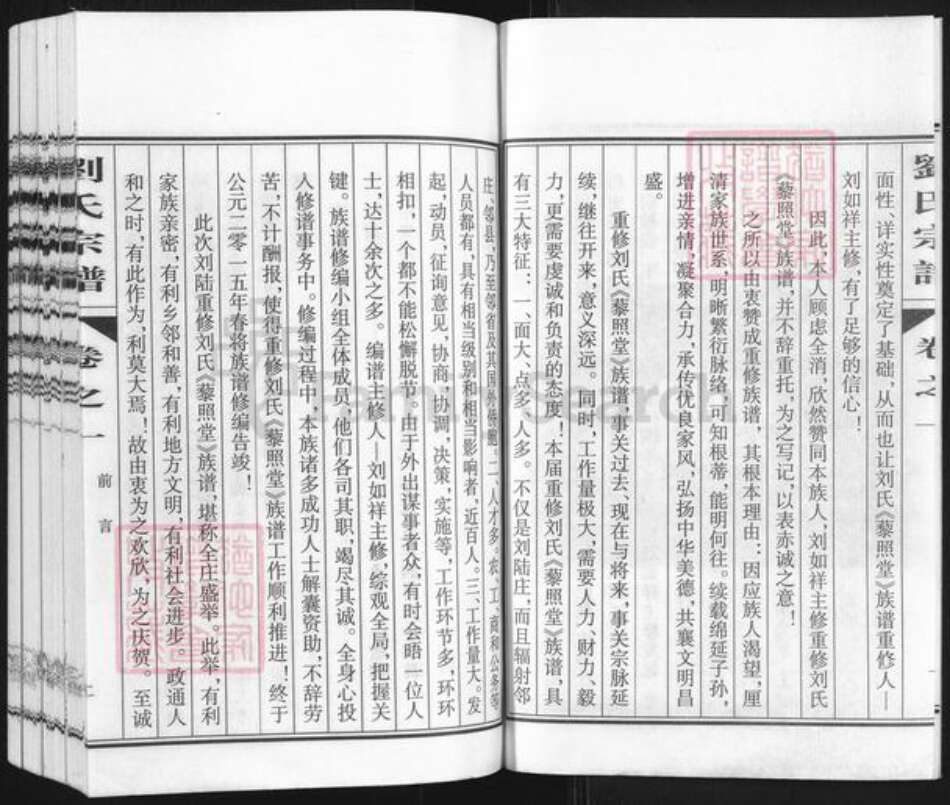 劉氏宗譜
卷之一
面性、详实性奠定了基础,从而也让刘氏《藜照堂》族谱重修人—
刘如祥主修,有了足够的信心!
因此,本人顾虑全消,欣然赞同本族人,刘如祥主修重修刘氏
《藜照堂》族谱,并不辞重托,为之写记,以表赤诚之意!
之所以由衷赞成重修族谱,其根本理由:因应族人渴望,厘
清家族世系,明晰繁衍脉络,可知根蒂,能明何往。续载绵延子孙,
增进亲情,凝聚合力,承传优良家风,弘扬中华美德,共襄文明昌
盛。
重修刘氏《藜照堂》族谱,事关过去、现在与将来,事关宗脉延
续,继往开来,意义深远。同时,工作量极大,需要人力、财力、毅
力,更需要虔诚和负责的态度!本届重修刘氏《藜照堂》族谱,具
有三大特征:一、面大、点多、人多。不仅是刘陆庄,而且辐射邻
庄、邻县,乃至邻省及其国外侨胞。二、人才多。农、工、商和公务等
人员都有,具有相当级别和相当影响者,近百人。三、工作量大。发
起,动员,征询意见,协商,协调,决策,实施等,工作环节多,环环
相扣,一个都不能松懈脱节。由于外出谋事者众,有时会晤一位人
士,达十余次之多。编谱主修人—刘如祥主修,综观全局,把握关
键。族谱修编小组全体成员,他们各司其职,竭尽其诚。全身心投
入修谱事务中。修编过程中,本族诸多成功人士解囊资助,不辞劳
苦,不计酬报,使得重修刘氏《藜照堂》族谱工作顺利推进!终于
公元二零一五年春将族谱修编告竣!
此次刘陆重修刘氏《藜照堂》族谱,堪称全庄盛举。此举,有利
家族亲密,有利乡邻和善,有利地方文明,有利社会进步。政通人
和之时,有此作为,利莫大焉!故由衷为之欢欣,为之庆贺。至诚
劉氏宗譜
卷之一
前言
FamilySearch